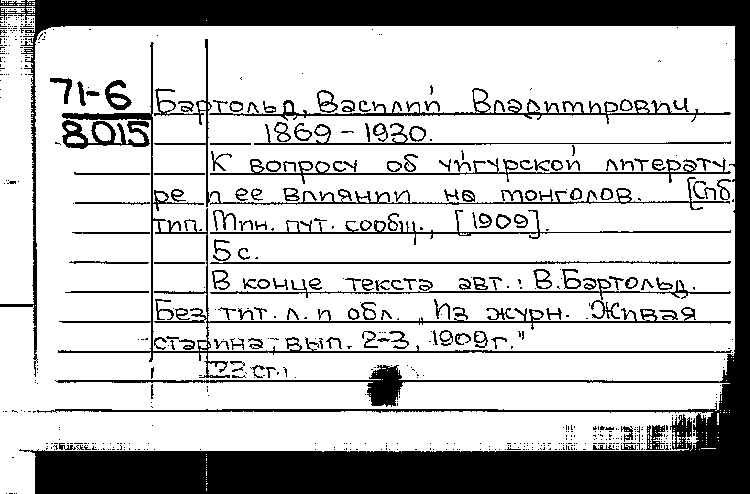 71-6
8015
Бартольд, Василий Владимирович,
1869-1930.
К вопросу об уйгурской литерату-
ре и ее влиянии на монголов. [Спб.
тип. Мин. пут. сообщ., [1909].
5 с.
В конце текста авт.: В. Бартольд.
Без тит. л. и обл. „Из журн. Живая
старина, вып. 2-3, 1909 г."